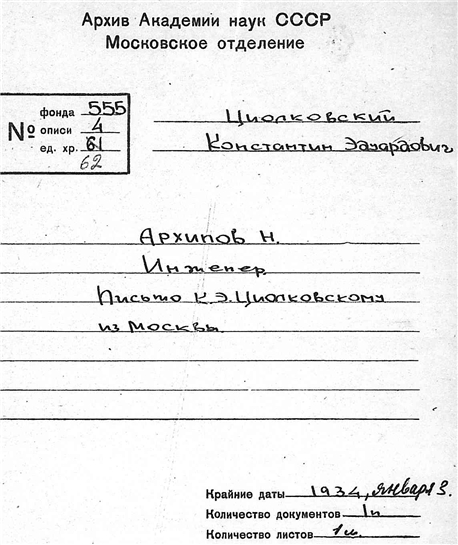 Архив Академии наук СССР
Московское отделение
№
фонда 555
описи 4
ед. хр. 61
62
Циолковский
Константин Эдуардович
Архипов Н.
Инженер
Письмо К.Э.Циолковскому
из Москвы.
Крайние даты 1934, января 3.
Количество документов 1п
Количество листов 1л.